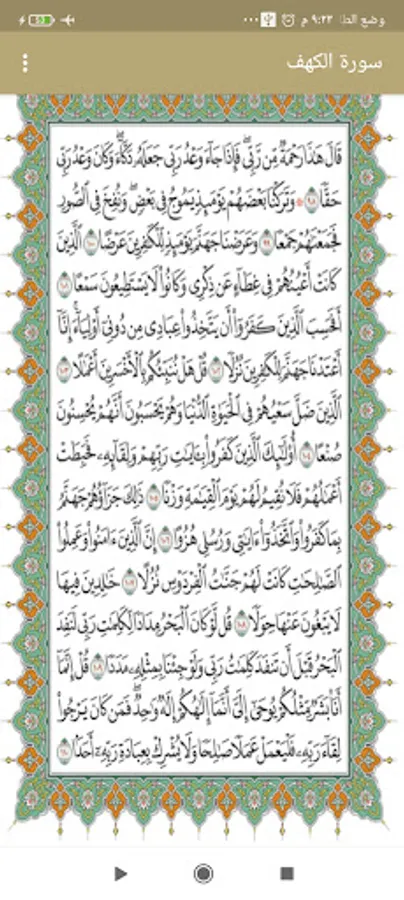 وضع الط ٩:٢٣ م ...
سورة الكهف
قَالَ هَٰذَا رَحْمَةٌ مِّن رَّبِّي ۖ فَإِذَا جَاءَ وَعْدُ رَبِّي جَعَلَهُ دَكَّاءَ ۖ وَكَانَ وَعْدُ رَبِّي
حَقًّا ٩٨ ۞ وَتَرَكْنَا بَعْضَهُمْ يَوْمَئِذٍ يَمُوجُ فِي بَعْضٍ ۖ وَنُفِخَ فِي الصُّورِ
فَجَمَعْنَاهُمْ جَمْعًا ٩٩ وَعَرَضْنَا جَهَنَّمَ يَوْمَئِذٍ لِّلْكَافِرِينَ عَرْضًا ١٠٠ الَّذِينَ
كَانَتْ أَعْيُنُهُمْ فِي غِطَاءٍ عَن ذِكْرِي وَكَانُوا لَا يَسْتَطِيعُونَ سَمْعًا ١٠١
أَفَحَسِبَ الَّذِينَ كَفَرُوا أَن يَتَّخِذُوا عِبَادِي مِن دُونِي أَوْلِيَاءَ ۚ إِنَّا
أَعْتَدْنَا جَهَنَّمَ لِلْكَافِرِينَ نُزُلًا ١٠٢ قُلْ هَلْ نُنَبِّئُكُم بِالْأَخْسَرِينَ أَعْمَالًا ١٠٣
الَّذِينَ ضَلَّ سَعْيُهُمْ فِي الْحَيَاةِ الدُّنْيَا وَهُمْ يَحْسَبُونَ أَنَّهُمْ يُحْسِنُونَ
صُنْعًا ١٠٤ أُولَٰئِكَ الَّذِينَ كَفَرُوا بِآيَاتِ رَبِّهِمْ وَلِقَائِهِ فَحَبِطَتْ
أَعْمَالُهُمْ فَلَا نُقِيمُ لَهُمْ يَوْمَ الْقِيَامَةِ وَزْنًا ١٠٥ ذَٰلِكَ جَزَاؤُهُمْ جَهَنَّمُ
بِمَا كَفَرُوا وَاتَّخَذُوا آيَاتِي وَرُسُلِي هُزُوًا ١٠٦ إِنَّ الَّذِينَ آمَنُوا وَعَمِلُوا
الصَّالِحَاتِ كَانَتْ لَهُمْ جَنَّاتُ الْفِرْدَوْسِ نُزُلًا ١٠٧ خَالِدِينَ فِيهَا
لَا يَبْغُونَ عَنْهَا حِوَلًا ١٠٨ قُل لَّوْ كَانَ الْبَحْرُ مِدَادًا لِّكَلِمَاتِ رَبِّي لَنَفِدَ
الْبَحْرُ قَبْلَ أَن تَنفَدَ كَلِمَاتُ رَبِّي وَلَوْ جِئْنَا بِمِثْلِهِ مَدَدًا ١٠٩ قُلْ إِنَّمَا
أَنَا بَشَرٌ مِّثْلُكُمْ يُوحَىٰ إِلَيَّ أَنَّمَا إِلَٰهُكُمْ إِلَٰهٌ وَاحِدٌ ۖ فَمَن كَانَ يَرْجُوا
لِقَاءَ رَبِّهِ فَلْيَعْمَلْ عَمَلًا صَالِحًا وَلَا يُشْرِكْ بِعِبَادَةِ رَبِّهِ أَحَدًا ١١٠